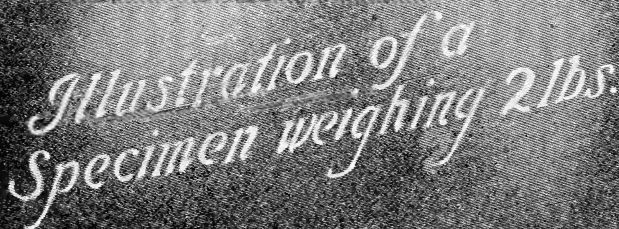 Illustration of a
Specimen weighing 2 lbs.